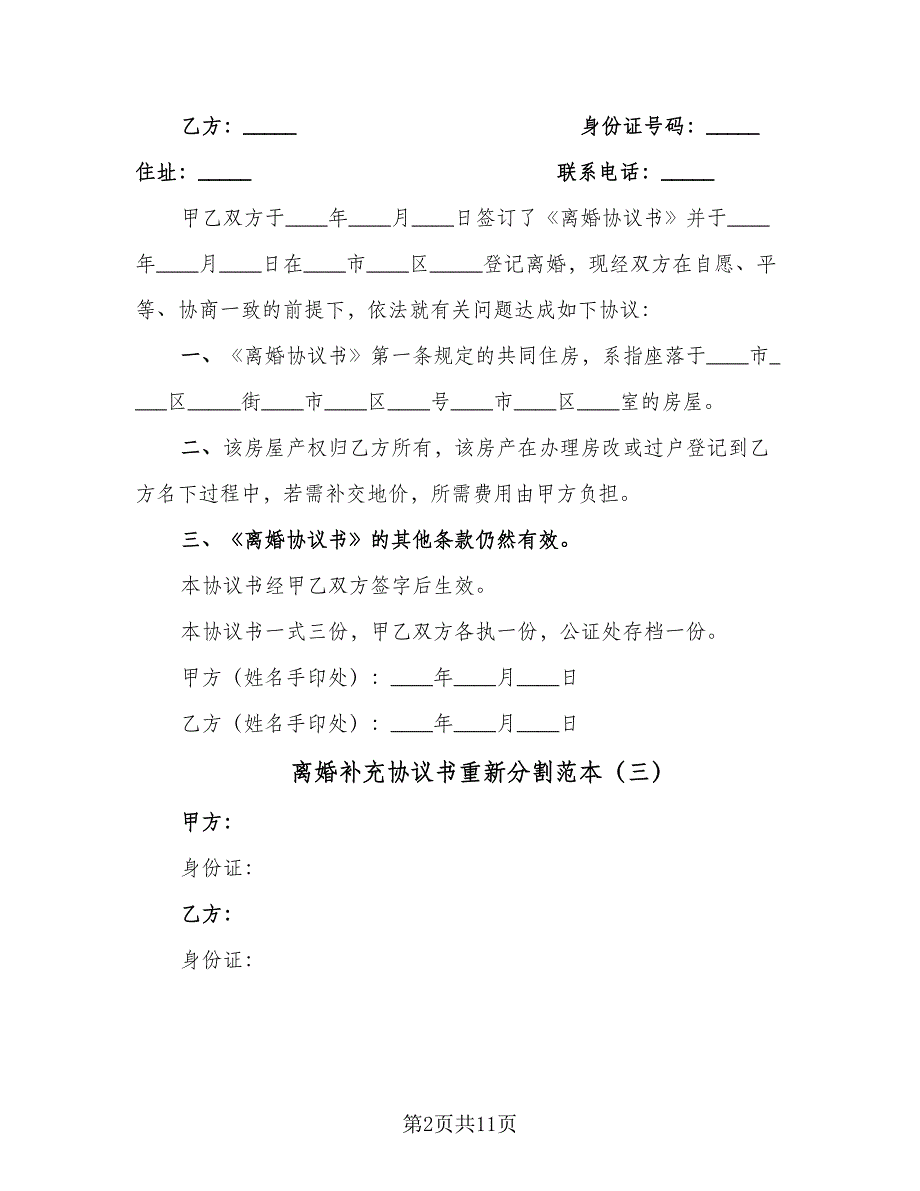 乙方：_____ 身份证号码：_____
住址：_____ 联系电话：_____
甲乙双方于____年____月____日签订了《离婚协议书》并于____
年____月____日在____市____区_____登记离婚，现经双方在自愿、平
等、协商一致的前提下，依法就有关问题达成如下协议：
一、《离婚协议书》第一条规定的共同住房，系指座落于____市_
___区_____街____市____区____号____市____区____室的房屋。
二、该房屋产权归乙方所有，该房产在办理房改或过户登记到乙
方名下过程中，若需补交地价，所需费用由甲方负担。
三、《离婚协议书》的其他条款仍然有效。
本协议书经甲乙双方签字后生效。
本协议书一式三份，甲乙双方各执一份，公证处存档一份。
甲方（姓名手印处）：____年____月____日
乙方（姓名手印处）：____年____月____日
离婚补充协议书重新分割范本（三）
甲方：
身份证：
乙方：
身份证：
第2页共11页